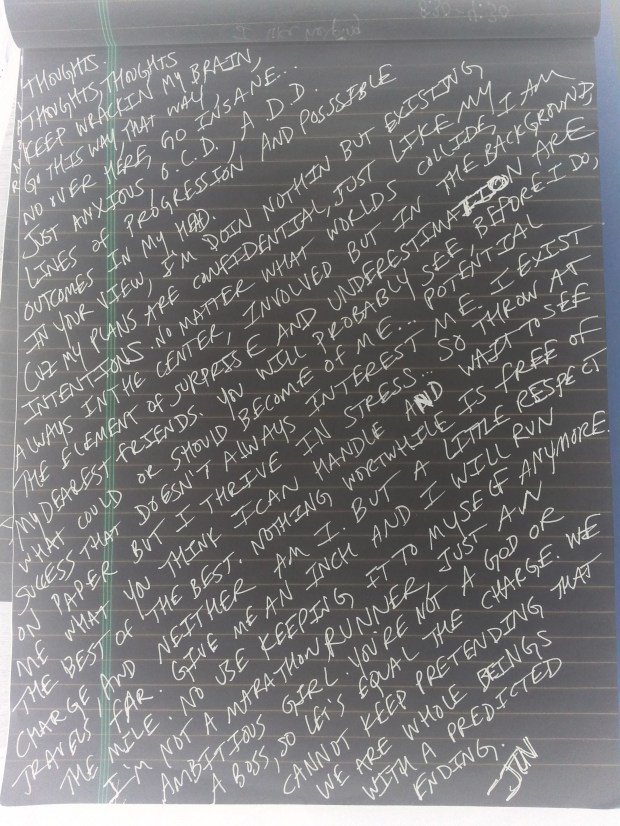 THOUGHTS.
THOUGHTS, THOUGHTS
KEEP WRACKIN MY BRAIN,
GO THIS WAY THAT WAY,
NO OVER HERE, GO INSANE...
JUST ANXIOUS O.C.D., A.D.D.
LINES OF PROGRESSION AND POSSSIBLE
OUTCOMES IN MY HEAD.
IN YOUR VIEW, I'M DOIN NOTHIN BUT EXISTING,
CUZ MY PLANS ARE CONFIDENTIAL, JUST LIKE MY
INTENTIONS. NO MATTER WHAT WORLDS COLLIDE, I AM
ALWAYS IN THE CENTER, INVOLVED BUT IN THE BACKGROUND,
THE ELEMENT OF SURPRISE AND UNDERESTIMATION ARE
MY DEAREST FRIENDS. YOU WILL PROBABLY SEE, BEFORE I DO,
WHAT COULD OR SHOULD BECOME OF ME... POTENTIAL
SUCCESS THAT DOESN'T ALWAYS INTEREST ME. I EXIST
ON PAPER BUT I THRIVE IN STRESS... SO THROW AT
ME WHAT YOU THINK I CAN HANDLE AND WAIT TO SEE
THE BEST OF THE BEST. NOTHING WORTHWHILE IS FREE OF
CHARGE AND NEITHER AM I. BUT A LITTLE RESPECT
TRAVELS FAR. GIVE ME AN INCH AND I WILL RUN
THE MILE. NO USE KEEPING IT TO MYSELF ANYMORE.
I'M NOT A MARATHON RUNNER, JUST AN
AMBITIOUS GIRL. YOU'RE NOT A GOD OR
A BOSS, SO LET'S EQUAL THE CHARGE. WE
CANNOT KEEP PRETENDING THAT
WE ARE WHOLE BEINGS
WITH A PREDICTED
ENDING.
-JIN